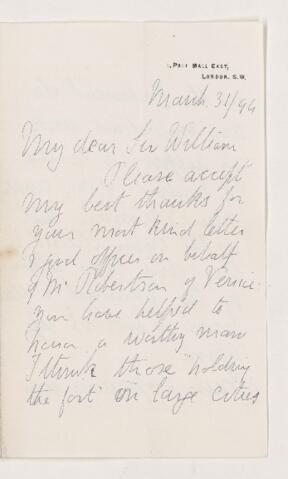 , PALL MALL EAST,
LONDON. S.W.
March 31/94
My dear Sir William
Please accept
my best thanks for
your most kind letter
& good offices on behalf
of Mr Robertson of Venice.
you have helped to
honor a worthy man
I think those "holding
the fort" in large cities